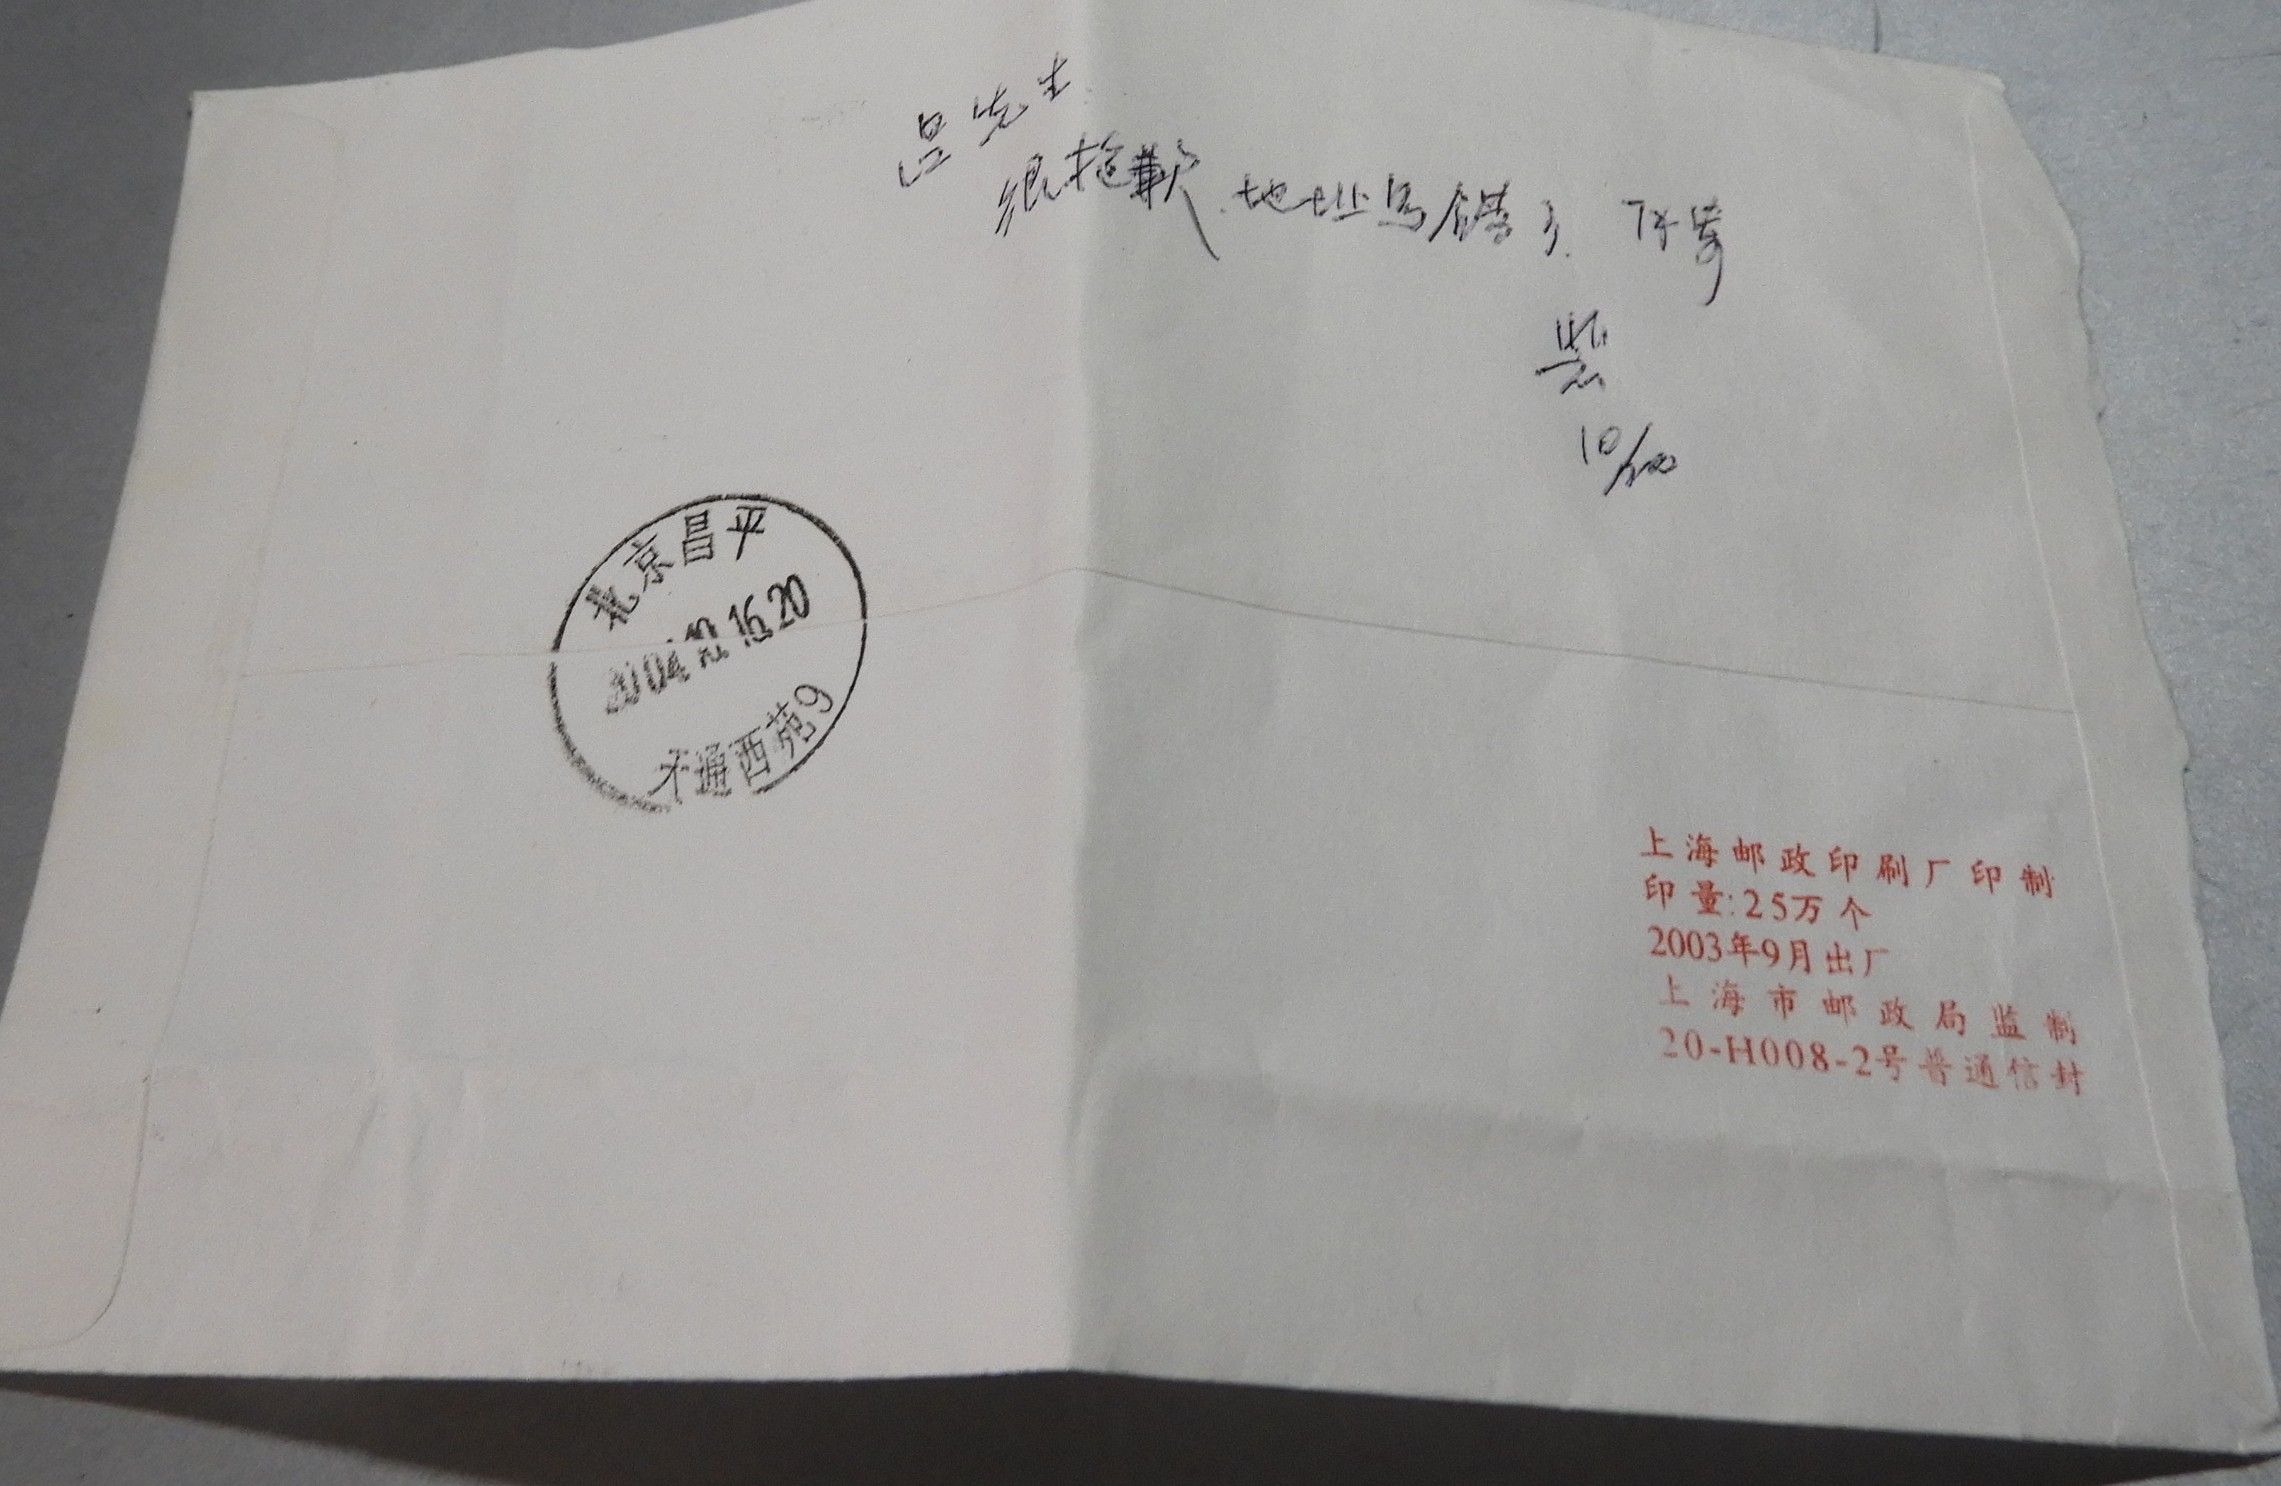 吕先生
很抱歉.地址写错了.再寄
10/200
北京昌平
2004.12.16.20
天通西苑9
上海邮政印刷厂印制
印量:25万个
2003年9月出厂
上海市邮政局监制
20-H008-2号普通信封